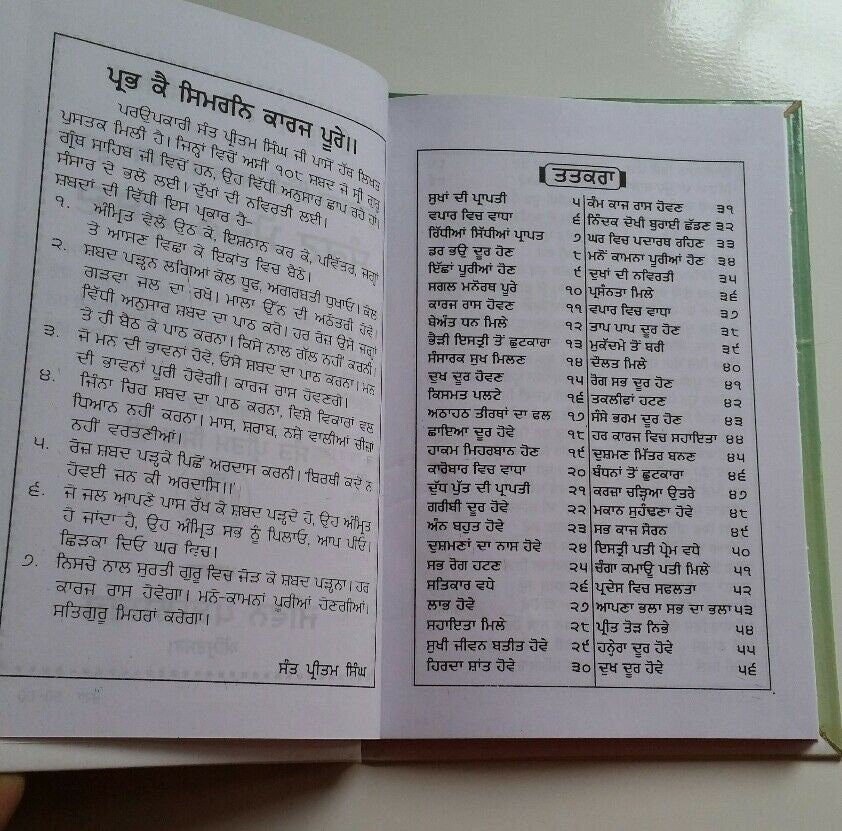 ਪ੍ਰਭ ਕੈ ਸਿਮਰਨਿ ਕਾਰਜ ਪੂਰੇ।।
ਪਰਉਪਕਾਰੀ ਸੰਤ ਪ੍ਰੀਤਮ ਸਿੰਘ ਜੀ ਪਾਸੋਂ ਹੱਥ ਲਿਖਤ
ਪੁਸਤਕ ਮਿਲੀ ਹੈ। ਜਿਨ੍ਹਾਂ ਵਿਚੋਂ ਅਸੀਂ ੧੦੮ ਸ਼ਬਦ ਜੋ ਸ੍ਰੀ ਗੁਰੂ
ਗ੍ਰੰਥ ਸਾਹਿਬ ਜੀ ਵਿਚੋਂ ਹਨ, ਉਹ ਵਿੱਧੀ ਅਨੁਸਾਰ ਛਾਪ ਰਹੇ ਹਾਂ।
ਸੰਸਾਰ ਦੇ ਭਲੇ ਲਈ। ਦੁੱਖਾਂ ਦੀ ਨਵਿਰਤੀ ਲਈ।
ਸ਼ਬਦਾਂ ਦੀ ਵਿੱਧੀ ਇਸ ਪ੍ਰਕਾਰ ਹੈ-
੧. ਅੰਮ੍ਰਿਤ ਵੇਲੇ ਉਠ ਕੇ, ਇਸ਼ਨਾਨ ਕਰ ਕੇ, ਪਵਿੱਤਰ, ਜਗ੍ਹਾਂ
ਤੇ ਆਸਣ ਵਿਛਾ ਕੇ ਇਕਾਂਤ ਵਿਚ ਬੈਠੋ।
੨. ਸ਼ਬਦ ਪੜ੍ਹਨ ਲਗਿਆਂ ਕੋਲ ਧੂਫ, ਅਗਰਬਤੀ ਧੁਖਾਓ। ਕੋਲ
ਗੜਵਾ ਜਲ ਦਾ ਰਖੋ। ਮਾਲਾ ਉੱਨ ਦੀ ਅਠੋਤਰੀ ਹੋਵੇ।
ਵਿੱਧੀ ਅਨੁਸਾਰ ਸ਼ਬਦ ਦਾ ਪਾਠ ਕਰੋ। ਹਰ ਰੋਜ਼ ਉਸੇ ਜਗ੍ਹਾਂ
ਤੇ ਹੀ ਬੈਠ ਕੇ ਪਾਠ ਕਰਨਾ। ਕਿਸੇ ਨਾਲ ਗੱਲ ਨਹੀਂ ਕਰਨੀ।
੩. ਜੋ ਮਨ ਦੀ ਭਾਵਨਾਂ ਹੋਵੇ, ਓਸੇ ਸ਼ਬਦ ਦਾ ਪਾਠ ਕਰਨਾ। ਮਨ
ਦੀ ਭਾਵਨਾਂ ਪੂਰੀ ਹੋਵੇਗੀ। ਕਾਰਜ ਰਾਸ ਹੋਵਣਗੇ।
੪. ਜਿੰਨਾ ਚਿਰ ਸ਼ਬਦ ਦਾ ਪਾਠ ਕਰਨਾ, ਵਿਸ਼ੇ ਵਿਕਾਰਾਂ ਵਲ
ਧਿਆਨ ਨਹੀਂ ਕਰਨਾ। ਮਾਸ, ਸ਼ਰਾਬ, ਨਸ਼ੇ ਵਾਲੀਆਂ ਚੀਜ਼ਾਂ
ਨਹੀਂ ਵਰਤਣੀਆਂ।
੫. ਰੋਜ਼ ਸ਼ਬਦ ਪੜ੍ਹਕੇ ਪਿਛੋਂ ਅਰਦਾਸ ਕਰਨੀ। 'ਬਿਰਥੀ ਕਦੇ ਨ
ਹੋਵਈ ਜਨ ਕੀ ਅਰਦਾਸਿ।।'
੬. ਜੋ ਜਲ ਆਪਣੇ ਪਾਸ ਰੱਖ ਕੇ ਸ਼ਬਦ ਪੜ੍ਹਦੇ ਹੋ, ਉਹ ਅੰਮ੍ਰਿਤ
ਹੋ ਜਾਂਦਾ ਹੈ, ਉਹ ਅੰਮ੍ਰਿਤ ਸਭ ਨੂੰ ਪਿਲਾਓ, ਆਪ ਪੀਓ।
ਛਿੜਕਾ ਦਿਓ ਘਰ ਵਿਚ।
੭. ਨਿਸਚੇ ਨਾਲ ਸੁਰਤੀ ਗੁਰੂ ਵਿਚ ਜੋੜ ਕੇ ਸ਼ਬਦ ਪੜ੍ਹਨਾ। ਹਰ
ਕਾਰਜ ਰਾਸ ਹੋਵੇਗਾ। ਮਨੋ-ਕਾਮਨਾਂ ਪੂਰੀਆਂ ਹੋਣਗੀਆਂ।
ਸਤਿਗੁਰੂ ਮਿਹਰਾਂ ਕਰੇਗਾ।
ਸੰਤ ਪ੍ਰੀਤਮ ਸਿੰਘ
ਤਤਕਰਾ
ਸੁਖਾਂ ਦੀ ਪ੍ਰਾਪਤੀ ੫
ਵਪਾਰ ਵਿਚ ਵਾਧਾ ੬
ਰਿੱਧੀਆਂ ਸਿੱਧੀਆਂ ਪ੍ਰਾਪਤ ੭
ਡਰ ਭਉ ਦੂਰ ਹੋਣ ੮
ਇੱਛਾਂ ਪੂਰੀਆਂ ਹੋਣ ੯
ਸਗਲ ਮਨੋਰਥ ਪੂਰੇ ੧੦
ਕਾਰਜ ਰਾਸ ਹੋਵਣ ੧੧
ਬੇਅੰਤ ਧਨ ਮਿਲੇ ੧੨
ਭੈੜੀ ਇਸਤ੍ਰੀ ਤੋਂ ਛੁਟਕਾਰਾ ੧੩
ਸੰਸਾਰਕ ਸੁਖ ਮਿਲਣ ੧੪
ਦੁਖ ਦੂਰ ਹੋਵਣ ੧੫
ਕਿਸਮਤ ਪਲਟੇ ੧੬
ਅਠਾਹਠ ਤੀਰਥਾਂ ਦਾ ਫਲ ੧੭
ਛਾਇਆ ਦੂਰ ਹੋਵੇ ੧੮
ਹਾਕਮ ਮਿਹਰਬਾਨ ਹੋਣ ੧੯
ਕਾਰੋਬਾਰ ਵਿਚ ਵਾਧਾ ੨੦
ਦੁੱਧ ਪੁੱਤ ਦੀ ਪ੍ਰਾਪਤੀ ੨੧
ਗਰੀਬੀ ਦੂਰ ਹੋਵੇ ੨੨
ਅੰਨ ਬਹੁਤ ਹੋਵੇ ੨੩
ਦੁਸ਼ਮਣਾਂ ਦਾ ਨਾਸ ਹੋਵੇ ੨੪
ਸਭ ਰੋਗ ਹਟਣ ੨੫
ਸਤਿਕਾਰ ਵਧੇ ੨੬
ਲਾਭ ਹੋਵੇ ੨੭
ਸਹਾਇਤਾ ਮਿਲੇ ੨੮
ਸੁਖੀ ਜੀਵਨ ਬਤੀਤ ਹੋਵੇ ੨੯
ਹਿਰਦਾ ਸ਼ਾਂਤ ਹੋਵੇ ੩੦
ਕੰਮ ਕਾਜ ਰਾਸ ਹੋਵਣ ੩੧
ਨਿੰਦਕ ਦੋਖੀ ਬੁਰਾਈ ਛੱਡਣ ੩੨
ਘਰ ਵਿਚ ਪਦਾਰਥ ਰਹਿਣ ੩੩
ਮਨੋਂ ਕਾਮਨਾ ਪੂਰੀਆਂ ਹੋਣ ੩੪
ਦੁਖਾਂ ਦੀ ਨਵਿਰਤੀ ੩੫
ਪ੍ਰਸੰਨਤਾ ਮਿਲੇ ੩੬
ਵਪਾਰ ਵਿਚ ਵਾਧਾ ੩੭
ਤਾਪ ਪਾਪ ਦੂਰ ਹੋਣ ੩੮
ਮੁਕੱਦਮੇ ਤੋਂ ਬਰੀ ੩੯
ਦੌਲਤ ਮਿਲੇ ੪੦
ਰੋਗ ਸਭ ਦੂਰ ਹੋਣ ੪੧
ਤਕਲੀਫਾਂ ਹਟਣ ੪੨
ਸੰਸੇ ਭਰਮ ਦੂਰ ਹੋਣ ੪੩
ਹਰ ਕਾਰਜ ਵਿਚ ਸਹਾਇਤਾ ੪੪
ਦੁਸ਼ਮਣ ਮਿੱਤਰ ਬਣਣ ੪੫
ਬੰਧਨਾਂ ਤੋਂ ਛੁਟਕਾਰਾ ੪੬
ਕਰਜ਼ਾ ਚੜ੍ਹਿਆ ਉਤਰੇ ੪੭
ਮਕਾਨ ਸੁਹੰਢਣਾ ਹੋਵੇ ੪੮
ਸਭ ਕਾਜ ਸੌਰਨ ੪੯
ਇਸਤ੍ਰੀ ਪਤੀ ਪ੍ਰੇਮ ਵਧੇ ੫੦
ਚੰਗਾ ਕਮਾਊ ਪਤੀ ਮਿਲੇ ੫੧
ਪ੍ਰਦੇਸ ਵਿਚ ਸਫਲਤਾ ੫੨
ਆਪਣਾ ਭਲਾ ਸਭ ਦਾ ਭਲਾ ੫੩
ਪ੍ਰੀਤ ਤੋੜ ਨਿਭੇ ੫੪
ਹਨ੍ਹੇਰਾ ਦੂਰ ਹੋਵੇ ੫੫
ਦੁਖ ਦੂਰ ਹੋਵੇ ੫੬